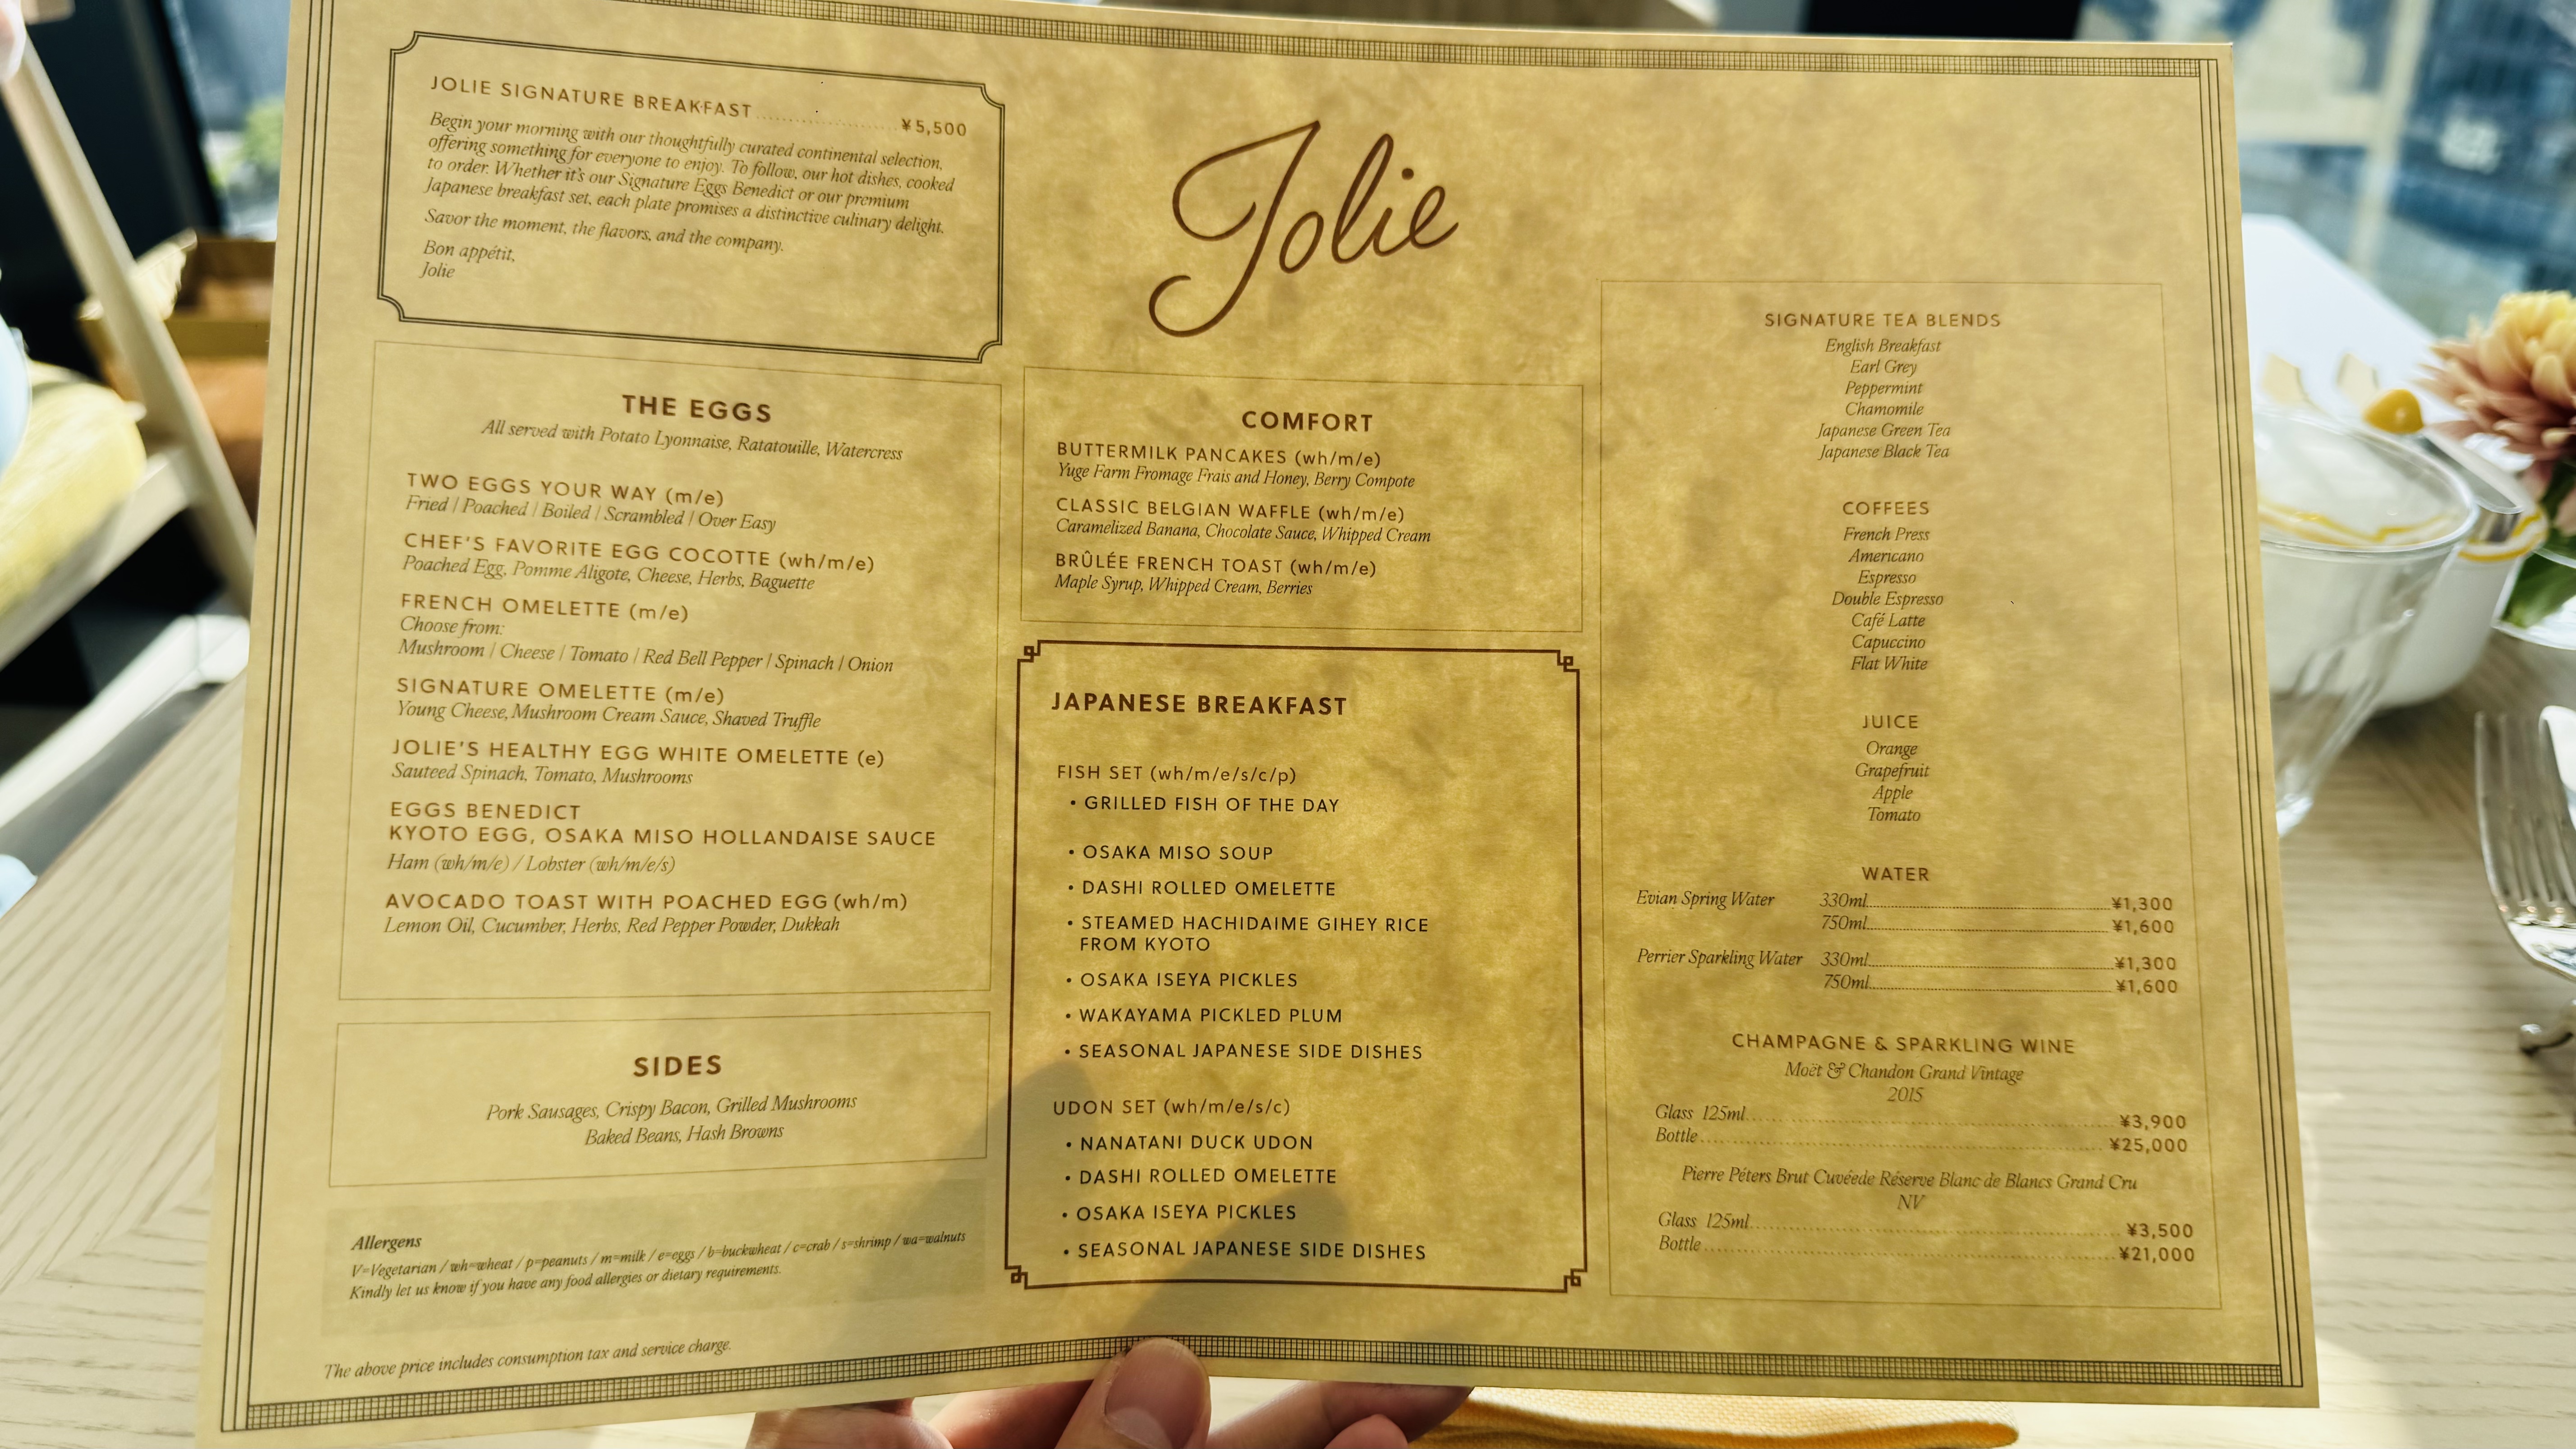 JOLIE SIGNATURE BREAKFAST ¥5,500
Begin your morning with our thoughtfully curated continental selection,
offering something for everyone to enjoy. To follow, our hot dishes, cooked
to order. Whether it's our Signature Eggs Benedict or our premium
Japanese breakfast set, each plate promises a distinctive culinary delight.
Savor the moment, the flavors, and the company.
Bon appétit,
Jolie
THE EGGS
All served with Potato Lyonnaise, Ratatouille, Watercress
TWO EGGS YOUR WAY (m/e)
Fried | Poached | Boiled | Scrambled | Over Easy
CHEF'S FAVORITE EGG COCOTTE (wh/m/e)
Poached Egg, Pomme Aligote, Cheese, Herbs, Baguette
FRENCH OMELETTE (m/e)
Choose from:
Mushroom | Cheese | Tomato | Red Bell Pepper | Spinach | Onion
SIGNATURE OMELETTE (m/e)
Young Cheese, Mushroom Cream Sauce, Shaved Truffle
JOLIE'S HEALTHY EGG WHITE OMELETTE (e)
Sauteed Spinach, Tomato, Mushrooms
EGGS BENEDICT
KYOTO EGG, OSAKA MISO HOLLANDAISE SAUCE
Ham (wh/m/e) / Lobster (wh/m/e/s)
AVOCADO TOAST WITH POACHED EGG (wh/m)
Lemon Oil, Cucumber, Herbs, Red Pepper Powder, Dukkah
SIDES
Pork Sausages, Crispy Bacon, Grilled Mushrooms
Baked Beans, Hash Browns
Allergens
V=Vegetarian / wh=wheat / p=peanuts / m=milk / e=eggs / b=buckwheat / c=crab / s=shrimp / wa=walnuts
Kindly let us know if you have any food allergies or dietary requirements.
The above price includes consumption tax and service charge.
Jolie
COMFORT
BUTTERMILK PANCAKES (wh/m/e)
Yuge Farm Fromage Frais and Honey, Berry Compote
CLASSIC BELGIAN WAFFLE (wh/m/e)
Caramelized Banana, Chocolate Sauce, Whipped Cream
BRÛLÉE FRENCH TOAST (wh/m/e)
Maple Syrup, Whipped Cream, Berries
JAPANESE BREAKFAST
FISH SET (wh/m/e/s/c/p)
• GRILLED FISH OF THE DAY
• OSAKA MISO SOUP
• DASHI ROLLED OMELETTE
• STEAMED HACHIDAIME GIHEY RICE
FROM KYOTO
• OSAKA ISEYA PICKLES
• WAKAYAMA PICKLED PLUM
• SEASONAL JAPANESE SIDE DISHES
UDON SET (wh/m/e/s/c)
• NANATANI DUCK UDON
• DASHI ROLLED OMELETTE
• OSAKA ISEYA PICKLES
• SEASONAL JAPANESE SIDE DISHES
SIGNATURE TEA BLENDS
English Breakfast
Earl Grey
Peppermint
Chamomile
Japanese Green Tea
Japanese Black Tea
COFFEES
French Press
Americano
Espresso
Double Espresso
Café Latte
Capuccino
Flat White
JUICE
Orange
Grapefruit
Apple
Tomato
WATER
Evian Spring Water 330ml ¥1,300
750ml ¥1,600
Perrier Sparkling Water 330ml ¥1,300
750ml ¥1,600
CHAMPAGNE & SPARKLING WINE
Moët & Chandon Grand Vintage
2015
Glass 125ml ¥3,900
Bottle ¥25,000
Pierre Péters Brut Cuvéede Réserve Blanc de Blancs Grand Cru
NV
Glass 125ml ¥3,500
Bottle ¥21,000